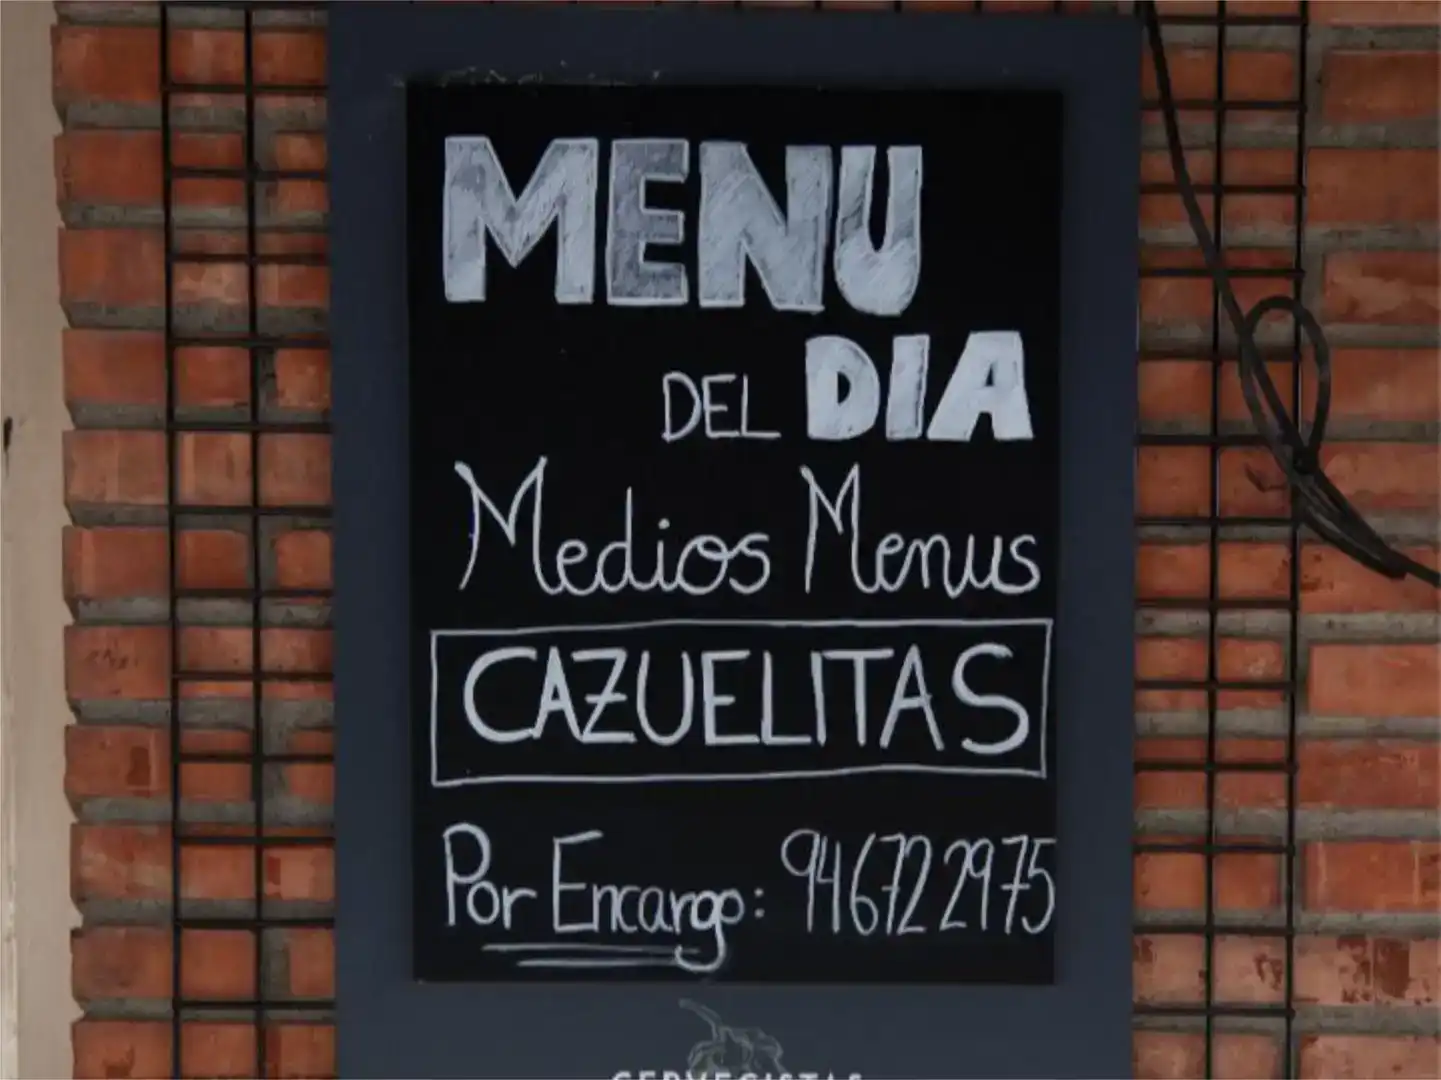 MENU
DEL DIA
Medios Menus
CAZUELITAS
Por Encargo: 946722975
CERVECISTAS